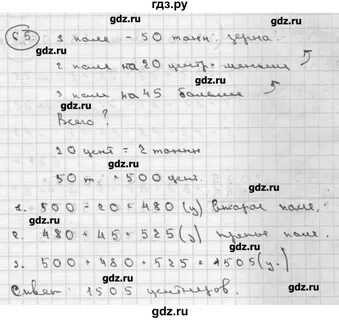 гдз.ру
65. 1 поле - 50 тонн. зерна.
gdz.ru
2 поле на 20 центр. меньше
gdz.ru
3 поле на 45 больше
gdz.ru
Всего?
gdz.ru
20 цент = 2 тонны
gdz.ru
50 т. = 500 цент.
gdz.ru
1. 500 - 20 = 480 (ц) второе поле.
gdz.ru
2. 480 + 45 = 525 (ц) третье поле.
gdz.ru
3. 500 + 480 + 525 = 1505 (ц.)
gdz.ru
Ответ: 1505 центнеров.
gdz.ru